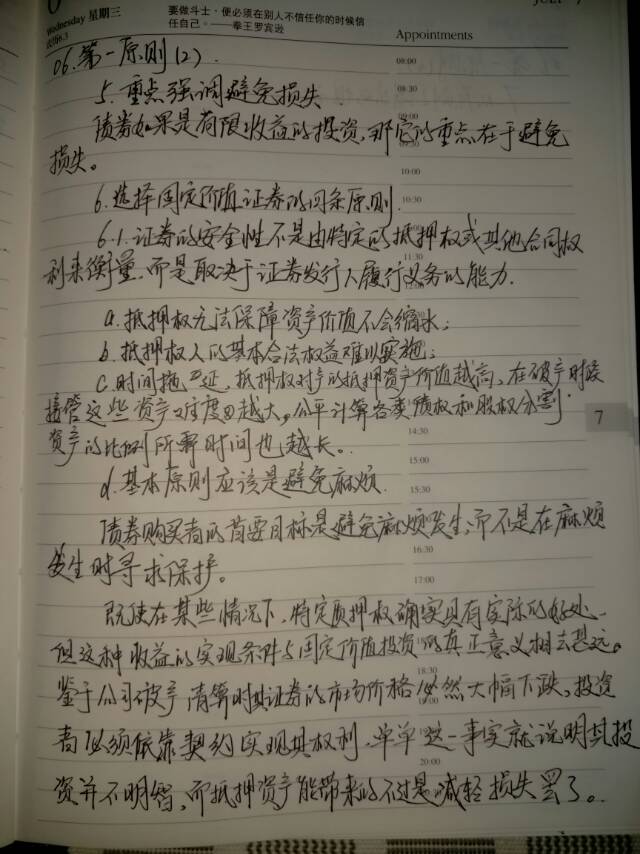 Wednesday 星期三
要做斗士,便必须在别人不信任你的时候信
任自己。——拳王罗宾逊
JULY 7
Appointments
06.第一原则(2).
08:00
5.重点强调避免损失.
08:30
债券如果是有限收益的投资,那它的重点在于避免
损失。
10:00
6.选择固定价值证券的四条原则.
10:30
6-1.证券的安全性不是由特定的抵押权或其他合同权
利来衡量,而是取决于证券发行人履行义务的能力.
11:30
a.抵押权无法保障资产价值不会缩水;
b.抵押权人的基本合法权益难以实施;
c.时间拖延,抵押权对应的抵押资产价值越高,在破产时候
接管这些资产难度越大,公平计算各类债权和股权分割
7
14:30
资产的比例所需时间也越长。
15:00
d.基本原则应该是避免麻烦.
15:30
债券购买者的首要目标是避免麻烦发生,而不是在麻烦
16:30
发生时寻求保护。
17:00
既使在某些情况下,特定质押权确实具有实际的好处,
但这种收益的实现条件与固定价值投资的真正意义相去甚远。
18:30
鉴于公司破产清算时其证券的市场价格必然大幅下跌,投资
者必须依靠契约实现其权利,单单这一事实就说明其投
20:00
资并不明智,而抵押资产能带来的不过是减轻损失罢了。